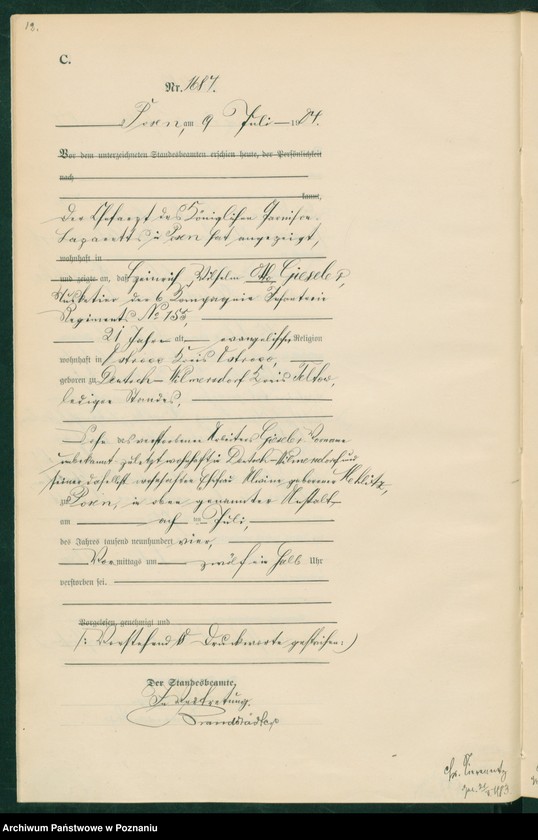 12.
C.
Nr. 1687.
Posen, am 9 Juli 1904.
Vor dem unterzeichneten Standesbeamten erschien heute, der Persönlichkeit
nach
kannt,
der Chefarzt des Königlichen Garnison-
Lazaretts in Posen hat angezeigt,
wohnhaft in
und zeigte an, daß Heinrich Wilhelm Otto Gieseler,
Musketier der 6 Kompagnie Infanterie
Regiments No 155,
21 Jahre alt evangelischer Religion
wohnhaft in Ostrowo Kreis Ostrowo,
geboren zu Deutsch-Wilmersdorf Kreis Teltow,
ledigen Standes,
Sohn des verstorbenen Arbeiters Gieseler, Vorname
unbekannt zuletzt wohnhaft in Deutsch-Wilmersdorf und
seiner daselbst wohnhaften Ehefrau geborener
zu Posen, in oben genannter Anstalt
am acht ten Juli,
des Jahres tausend neunhundert vier,
Vormittags um zwölf ein halb Uhr
verstorben sei.
Vorgelesen, genehmigt und
/: Vorstehend Druckworte gestrichen :)
Der Standesbeamte.
In Vertretung.
Archiwum Państwowe w Poznaniu